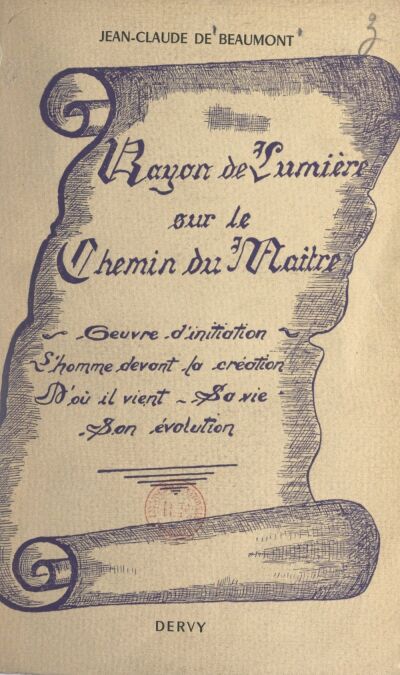 JEAN-CLAUDE DE BEAUMONT
3
Rayon de Lumière
sur le
Chemin du Maître
~ Oeuvre d'initiation ~
L'homme devant la création
D'où il vient - Sa vie -
Son évolution
DERVY